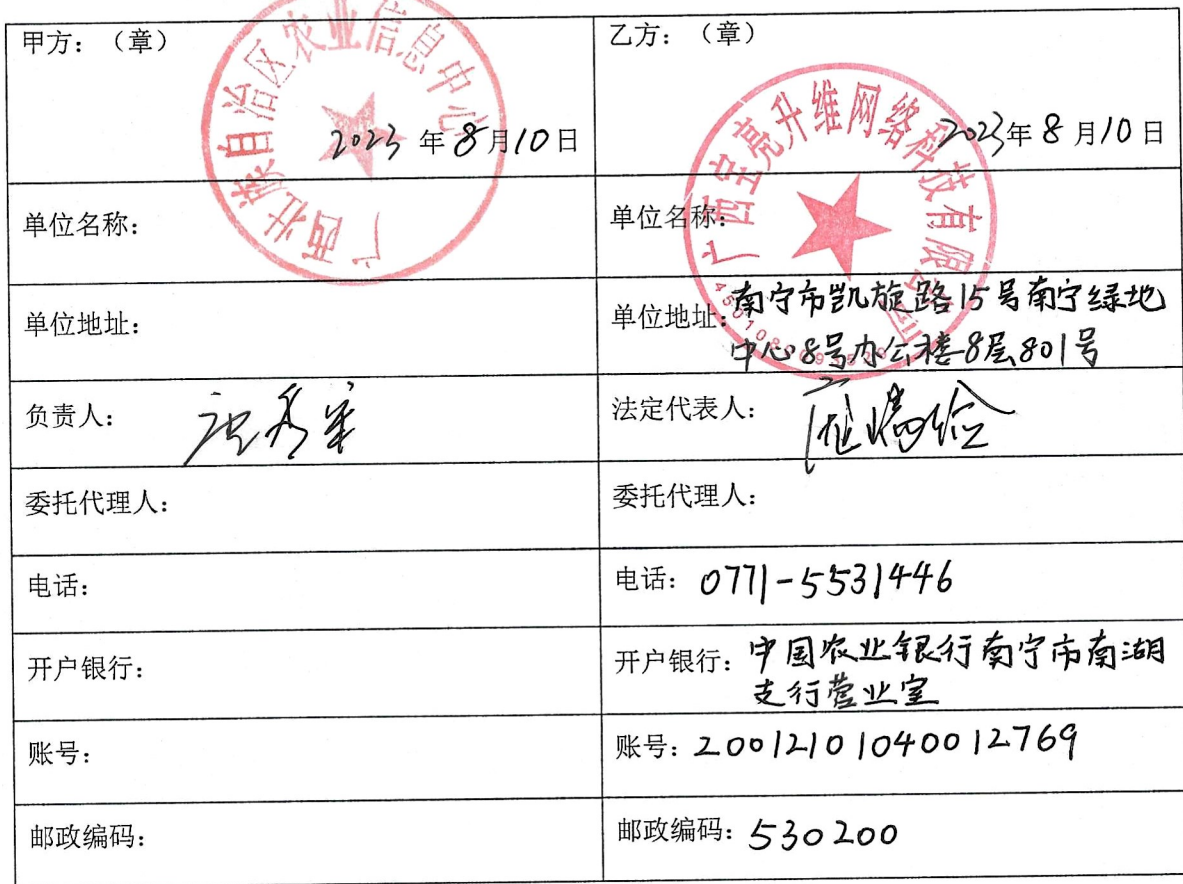 甲方：（章）
广西壮族自治区农业信息中心
2023 年 8 月 10 日
乙方：（章）
广西宝亮升维网络科技有限公司
2023 年 8 月 10 日
单位名称：
单位名称：
单位地址：
单位地址：南宁市凯旋路15号南宁绿地
中心8号办公楼8层801号
负责人：
法定代表人：
委托代理人：
委托代理人：
电话：
电话：0771-5531446
开户银行：
开户银行：中国农业银行南宁市南湖
支行营业室
账号：
账号：20012101040012769
邮政编码：
邮政编码：530200